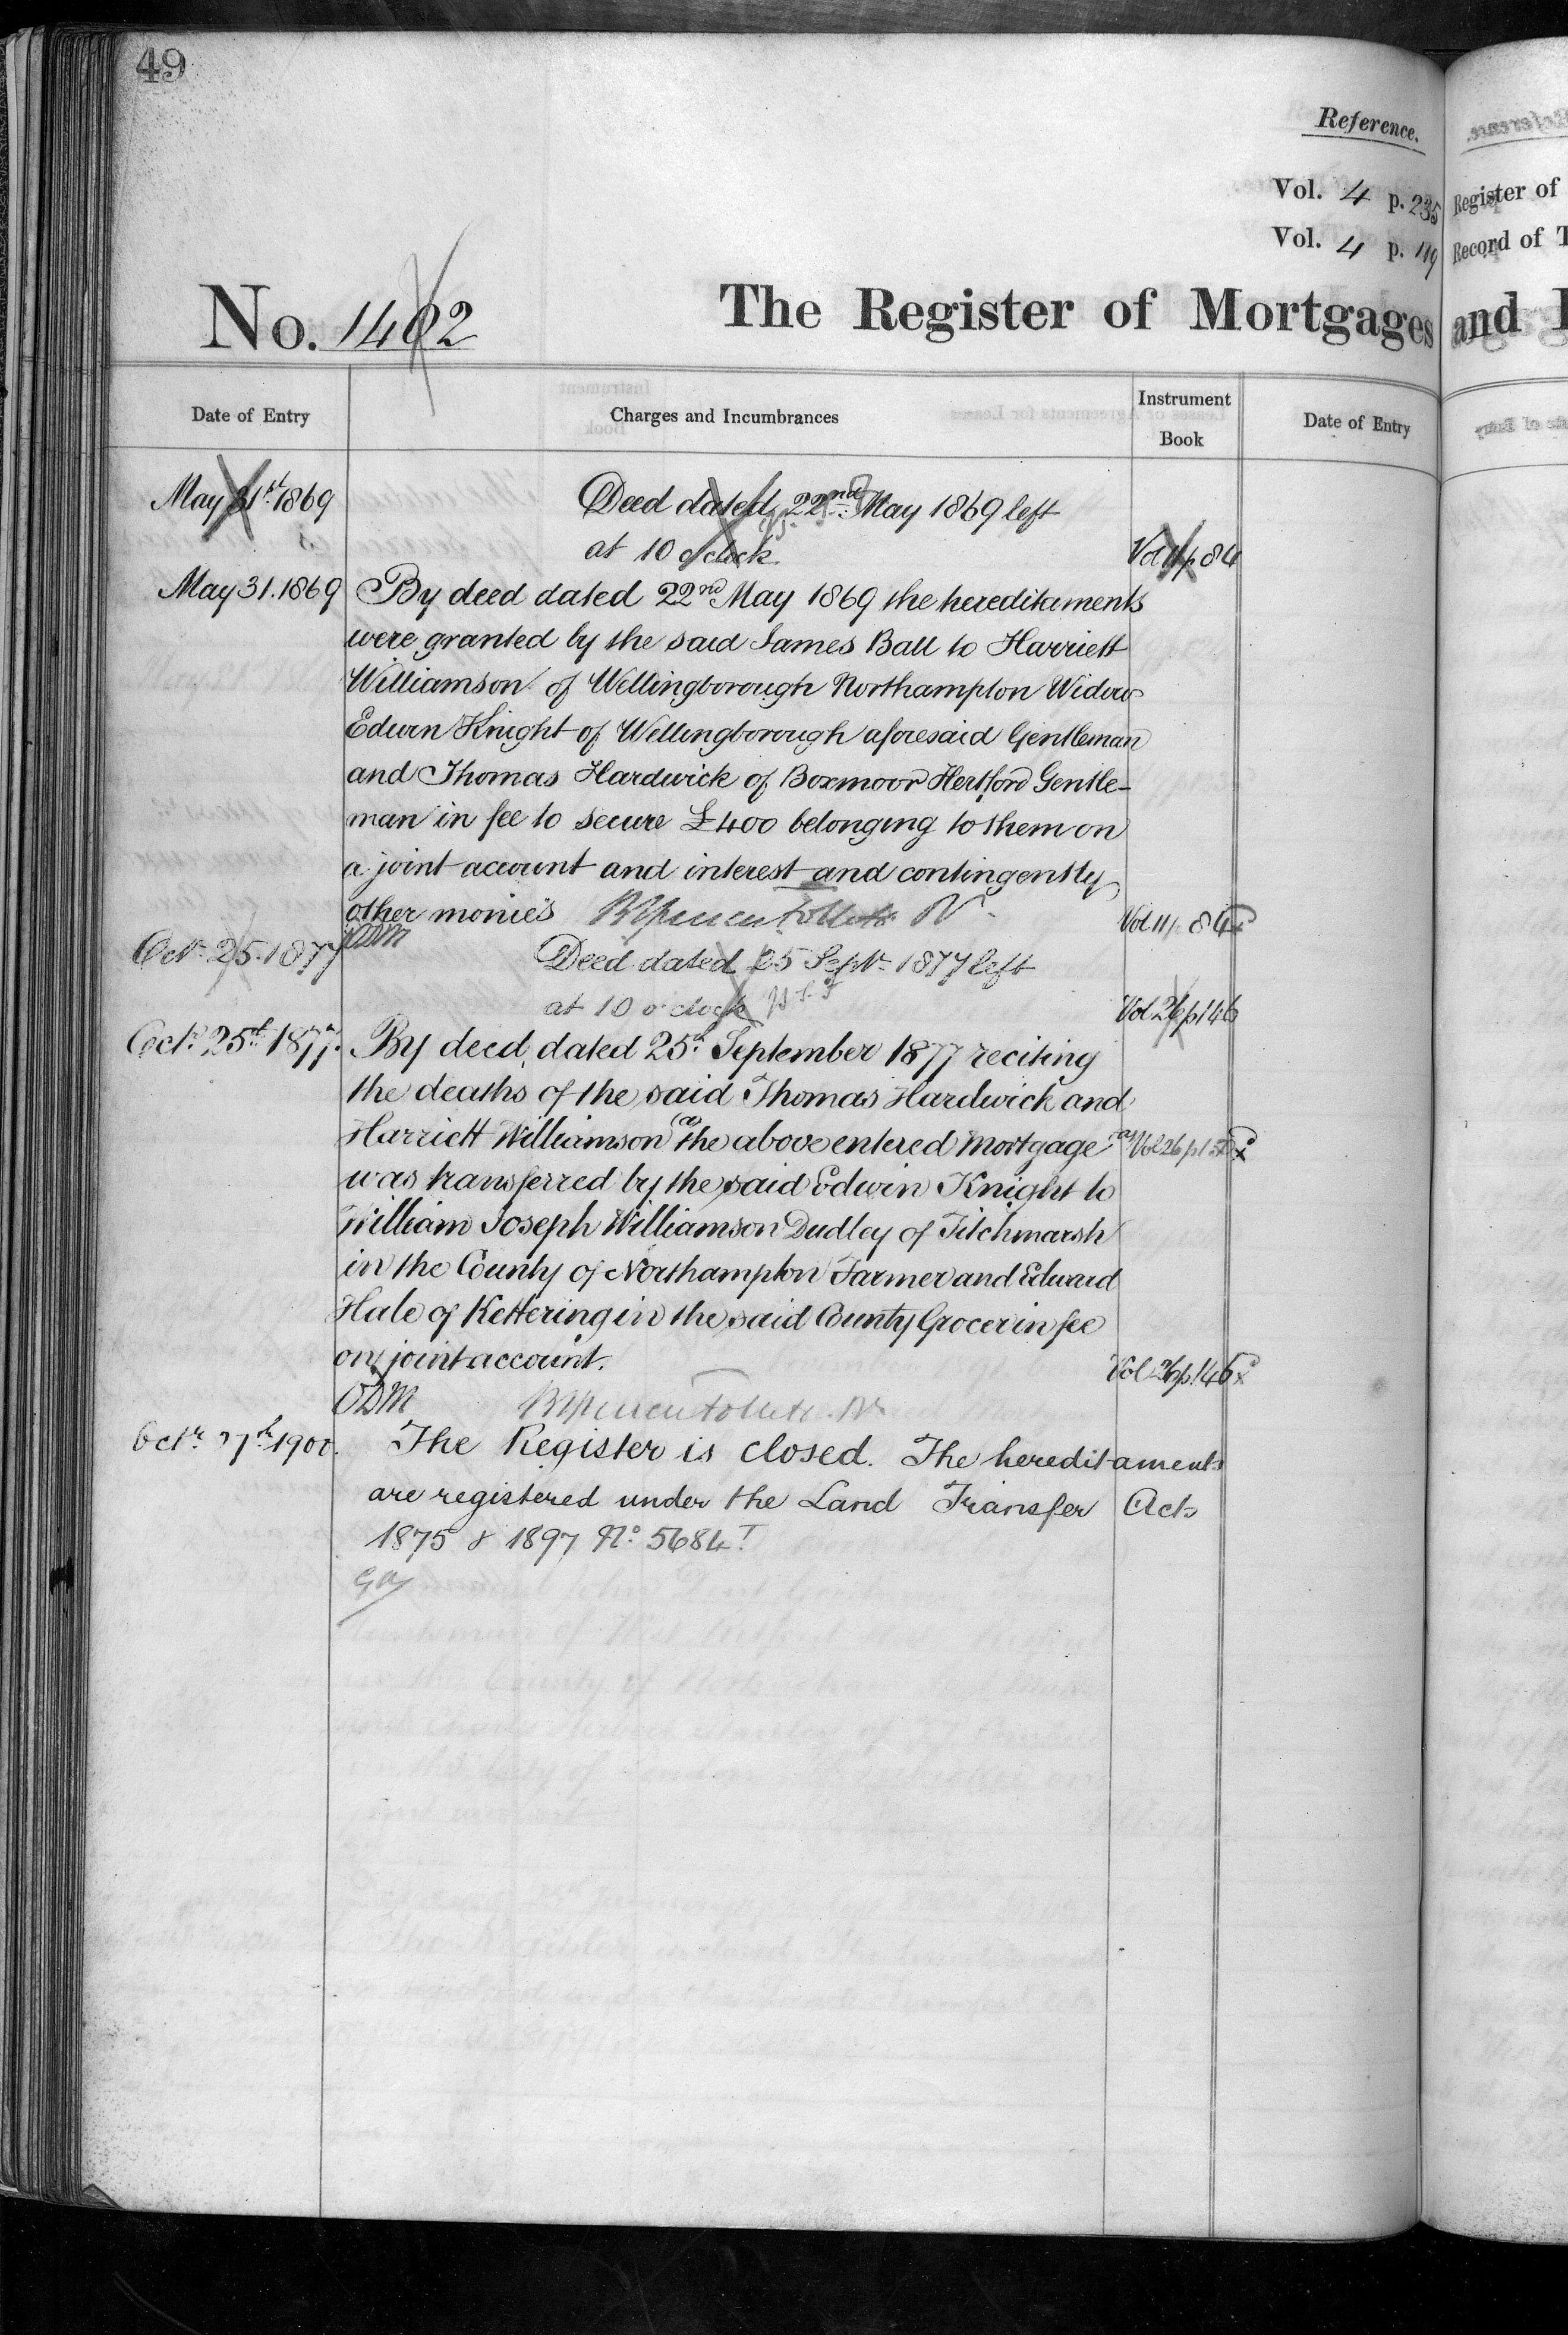 49
Reference.
Vol. 4 p. 235 Register of
Vol. 4 p. 119 Record of T
No. 1402 The Register of Mortgages and
Date of Entry Charges and Incumbrances Instrument Book Date of Entry
May 31st 1869 Deed dated 22nd May 1869 left
at 10 o'clock Vol 11 p 84
May 31. 1869 By deed dated 22nd May 1869 the hereditaments
were granted by the said James Ball to Harriett
Williamson of Wellingborough Northampton Widow
Edwin Knight of Wellingborough aforesaid Gentleman
and Thomas Hardwick of Boxmoor Hertford Gentle-
man in fee to secure £400 belonging to them on
a joint account and interest and contingently
other monies Vol 11 p 84
Octr. 25. 1877 Deed dated 25 Septr. 1877 left
at 10 o'clock Vol 26 p 146
Oct. 25th 1877. By deed dated 25th September 1877 reciting
the deaths of the said Thomas Hardwick and
Harriett Williamson (a) the above entered Mortgage (a) Vol 26 p
was transferred by the said Edwin Knight to
William Joseph Williamson Dudley of Titchmarsh
in the County of Northampton Farmer and Edward
Hale of Kettering in the said County Grocer in fee
on joint account. Vol 26 p. 146
ODM
Octr. 27th 1900. The Register is closed. The hereditaments
are registered under the Land Transfer Acts
1875 & 1897 No. 5684 T